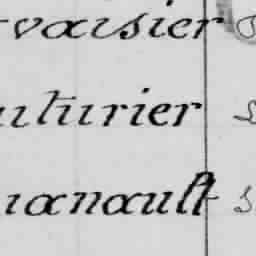 rvaisier
uturier
uanault